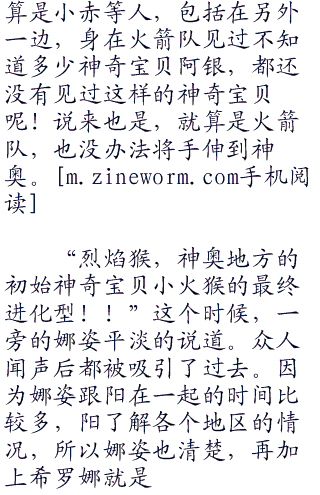 算是小赤等人，包括在另外
一边，身在火箭队见过不知
道多少神奇宝贝阿银，都还
没有见过这样的神奇宝贝
呢！说来也是，就算是火箭
队，也没办法将手伸到神
奥。[m.zineworm.com手机阅
读]
“烈焰猴，神奥地方的
初始神奇宝贝小火猴的最终
进化型！！”这个时候，一
旁的娜姿平淡的说道。众人
闻声后都被吸引了过去。因
为娜姿跟阳在一起的时间比
较多，阳了解各个地区的情
况，所以娜姿也清楚，再加
上希罗娜就是